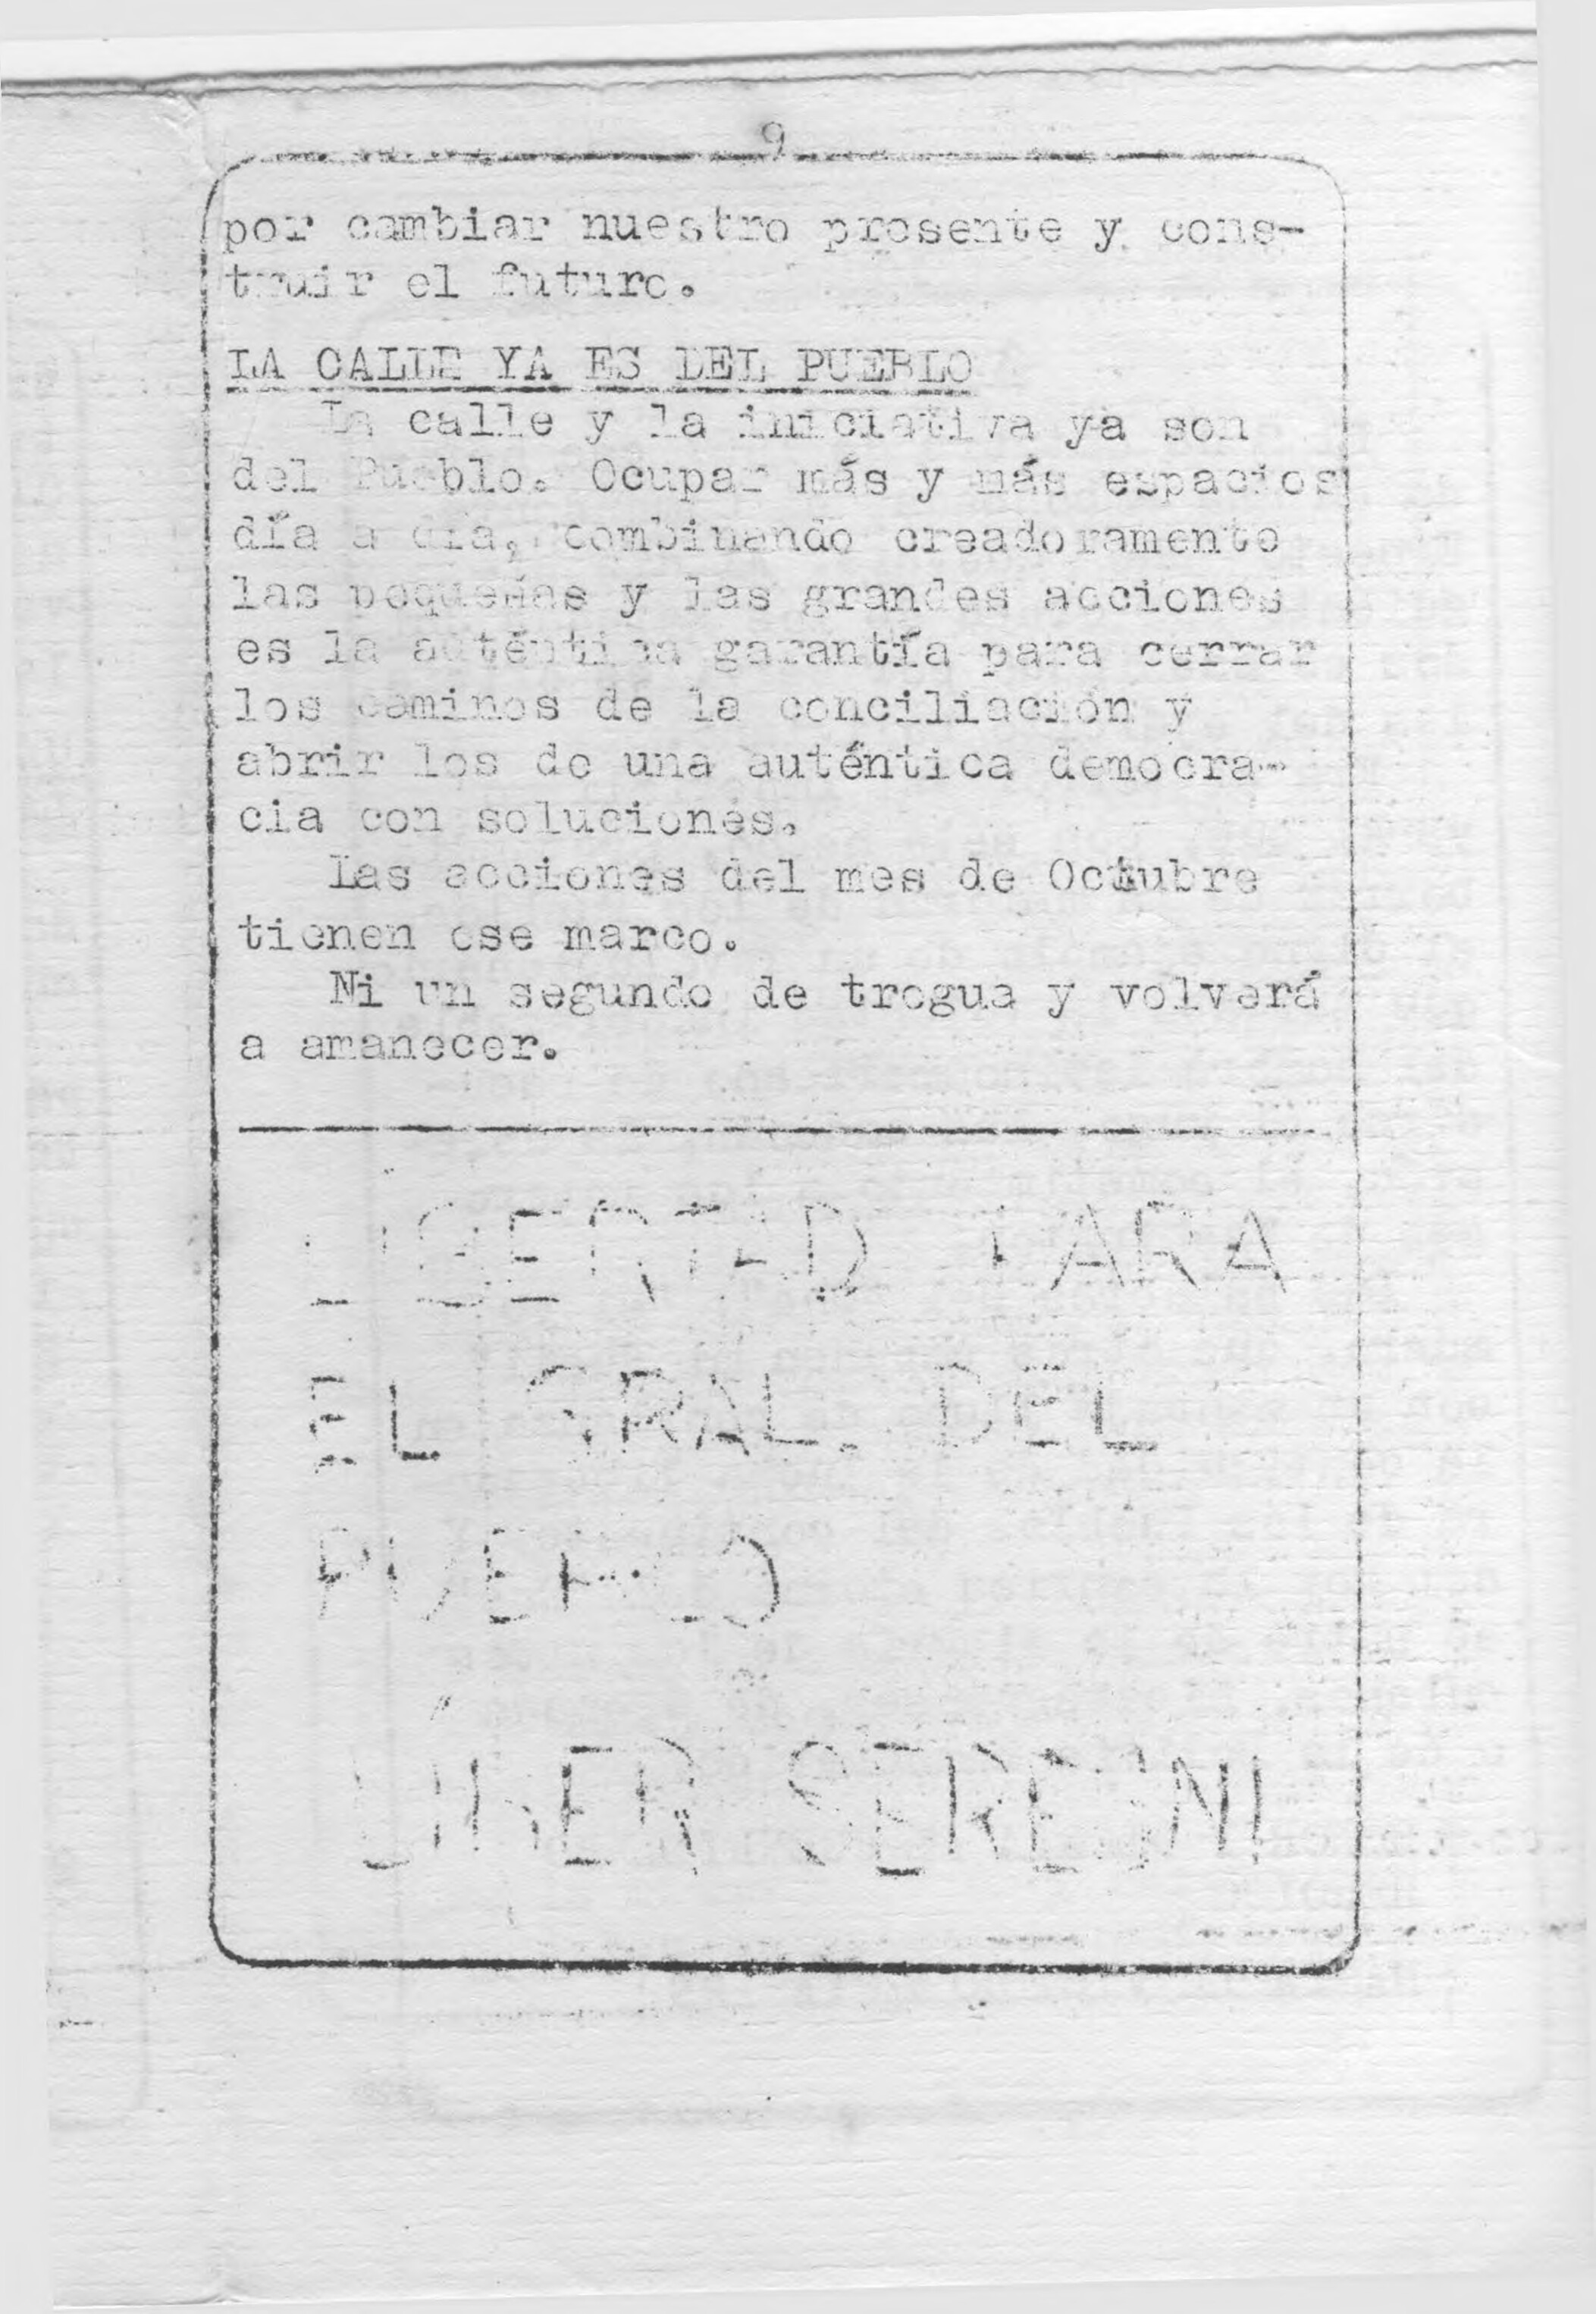 9
por cambiar nuestro presente y cons-
truir el futuro.
LA CALLE YA ES DEL PUEBLO
La calle y la iniciativa ya son
del Pueblo. Ocupar más y más espacios
día a día, combinando creadoramente
las pequeñas y las grandes acciones
es la auténtica garantía para cerrar
los caminos de la conciliación y
abrir los de una auténtica democra-
cia con soluciones.
Las acciones del mes de Octubre
tienen ese marco.
Ni un segundo de tregua y volverá
a amanecer.
LIBERTAD PARA
EL GRAL. DEL
PUEBLO
LÍBER SEREGNI